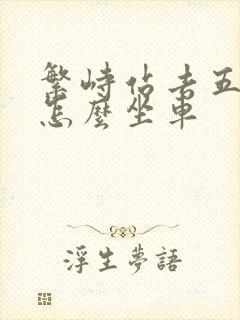 繁峙佔去五
怎麼坐車
浮生夢語